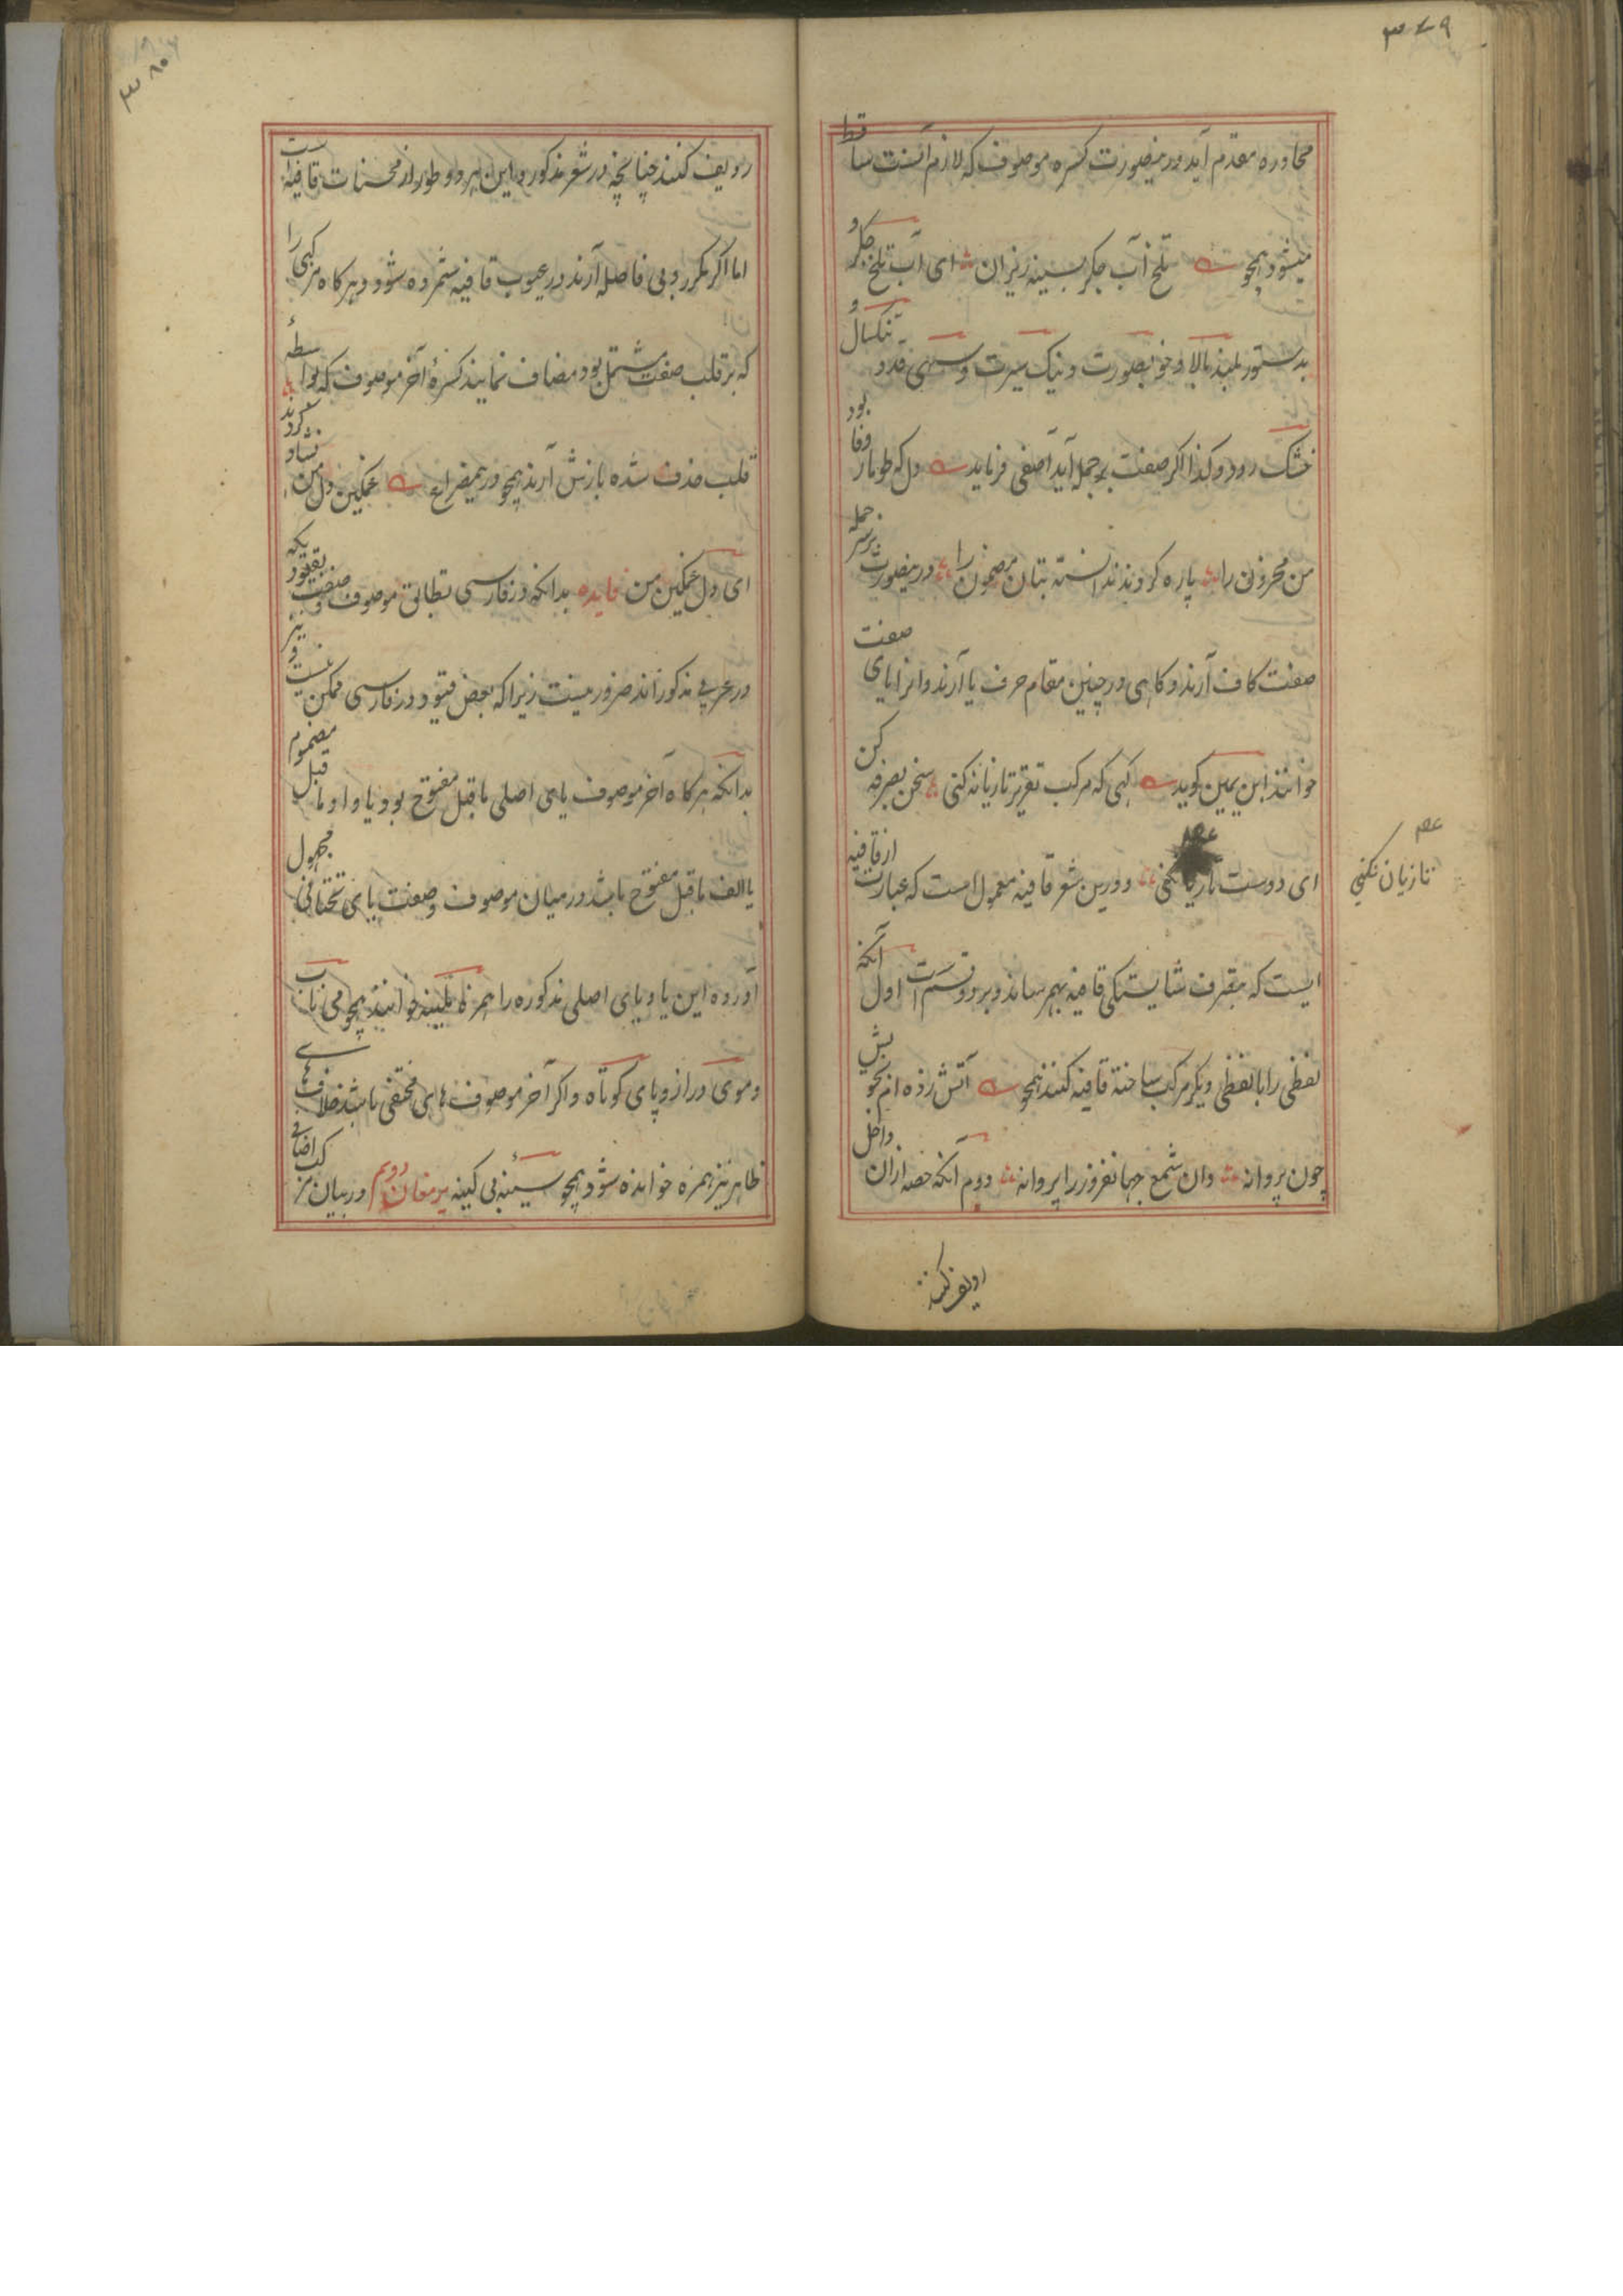 ۳۷۹
محاوره مقدم آید درینصورت کسره موصوف که لازم آنست ساقط
میشود همچو تلخ آب جگر بسینه ریزان ای آب تلخ جگر و
بدستور بلند بالا و خوبصورت و نیک سیرت و سهی قد و تنکسال و
خشک رود و کذا اگر صفت بر جمله آید آصفی فرماید دل که طومار وفا بود
من محزون را پاره کردند ندانسته بتان مضمون را درینصورت بر سر جمله
صفت کاف آرند و کاهی در چنین مقام حرف یا آرند و انرا یای صفت
خوانند ابن یمین کوید کهی که مرکب تقریر تازیانه کنی سخن بصرفه کن
ای دوست تا زیان نکنی و درین شعر قافیه معمول است که عبارت از قافیه
ایست که بتصرف شایستکی قافیه بهم رساند و بر دو قسم است اول آنکه
لفظی را با لفظی دیگر مرکب ساخته قافیه کنند همچو آتش زده ام بخویش
چون پروانه وان شمع جهانفروز را پروانه دوم آنکه حصه ازان داخل
ردیف کنند
عصم
تا زیان نکنی
۳۸۰
ردیف کنند چنانچه در شعر مذکور و این هر دو طور از محسنات قافیه است
اما اگر مکرر و بی فاصله آرند در عیوب قافیه شمرده شود و هر کاه مرکبی را
که بر قلب صفت مشتمل بود مضاف نمایند کسرهٔ آخر موصوف که بواسطهٔ
قلب حذف شده بازش آرند همچو درین مصراع غمکین دل من شاد نکردند
ای دل غمکین من فایده بدانکه در فارسی تطابق موصوف و صفت بقیود یکه
در عربی مذکور اند ضرور نیست زیرا که بعض قیود در فارسی ممکن نیست و نیز
بدانکه هر کاه آخر موصوف یای اصلی ماقبل مفتوح بود یا واو ماقبل مضموم
یا الف ماقبل مفتوح باشد در میان موصوف و صفت یای تحتانی مجهول
آورده این یا و یای اصلی مذکوره را همزه ملینه خوانند همچو می ناب
و موی دراز و پای کوتاه و اگر آخر موصوف های مختفی باشد خلاف
ظاهر نیز همزه خوانده شود همچو سینهٔ بی کینه پرمغان دویم در بیان مرکب اضافی